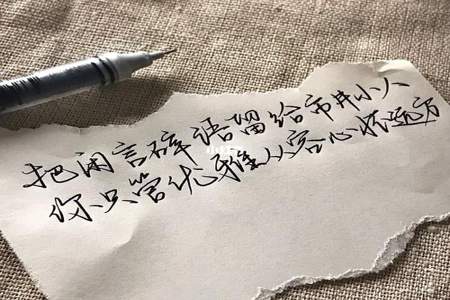 把闲言碎语留给市井小人
你只管优雅从容心怀远方